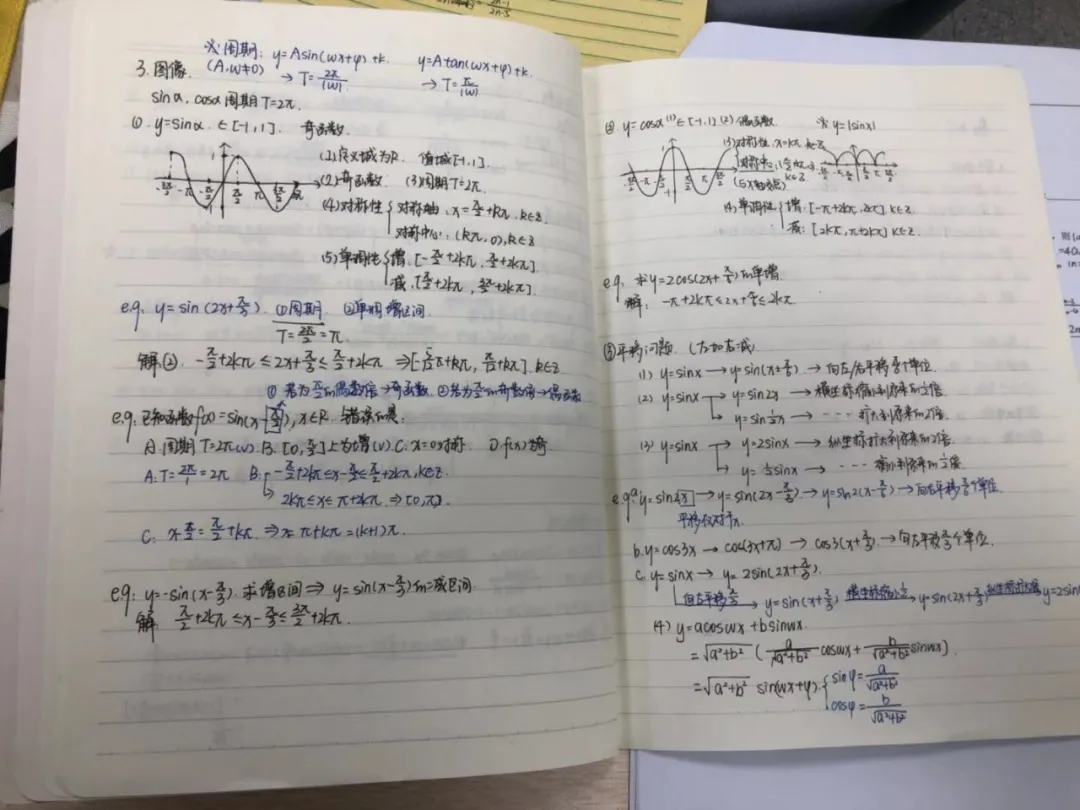 ※周期: y=Asin(wx+φ)+k. y=Atan(wx+φ)+k.
3.图像. (A,w≠0) →T=2π/|w| →T=π/|w|
sinα, cosα 周期T=2π.
①. y=sinα ∈[-1,1]. 奇函数.
(1)定义域为R. 值域[-1,1].
(2)奇函数. (3)周期T=2π.
(4)对称性 对称轴. x=π/2+kπ. k∈Z
对称中心: (kπ,0),k∈Z
(5)单调性 增. [-π/2+2kπ, π/2+2kπ].
减. [π/2+2kπ, 3π/2+2kπ].
e.g. y=sin(2x+π/3). ①周期 ②单调增区间.
T=2π/2=π
解②. -π/2+2kπ≤2x+π/3≤π/2+2kπ ⇒[-5/12π+kπ, π/12+kπ]. k∈Z
①若为π/2的偶数倍→奇函数. ②若为π/2的奇数倍→偶函数
e.g. 已知函数f(x)=sin(x-π/2), x∈R. 错误的是:
A.周期T=2π(v) B.[0,π/2]上为增(v) C.x=0对称. D.f(x)为奇.
A:T=2π/1=2π B:-π/2+2kπ≤x-π/2≤π/2+2kπ,k∈Z.
2kπ≤x≤π+2kπ ⇒[0,π].
C: x-π/2=π/2+kπ. ⇒x=π+kπ=(k+1)π.
e.g. y=-sin(x-π/3). 求增区间⇒ y=sin(x-π/3)的减区间.
解. π/2+2kπ≤x-π/3≤3π/2+2kπ.
②. y=cosα (1)∈[-1,1] (2)偶函数 ※ y=|sinx|
(3)对称性, x=kπ k∈Z
对称中心
k∈Z
(4)单调性 增. [-π+2kπ, 2kπ] k∈Z.
减. [2kπ,π+2kπ] k∈Z.
e.g. 求y=2cos(2x+π/3)的单增.
解: -π+2kπ≤2x+π/3≤2kπ
③平移问题. (左加右减)
(1) y=sinx→y=sin(x±π/3). →向左/右平移π/3个单位
(2) y=sinx→y=sin2x→横坐标缩小到原来的1/2倍.
→y=sin1/2x→ ···· 扩大到原来的2倍.
(3) y=sinx→y=2sinx→纵坐标扩大到原来的2倍.
→y=1/2sinx→ ···· 缩小到原来的1/2倍
e.g. a. y=sin2x→y=sin(2x-π/3)→y=sin2(x-π/6)→向右平移π/6个单位
平移仅对于x.
b. y=cos3x→cos(3x+π)→cos3(x+π/3).→向左平移π/3个单位.
c. y=sinx→y=2sin(2x+π/3).
向左平移π/3→y=sin(x+π/3). 横坐标缩小1/2→y=sin(2x+π/3) 纵坐标扩大2倍→y=2sin
(4) y=acoswx+bsinwx.
=√a²+b² (a/√a²+b² coswx+b/√a²+b² sinwx).
=√a²+b² sin(wx+φ). sinφ=a/√a²+b²
cosφ=b/√a²+b²